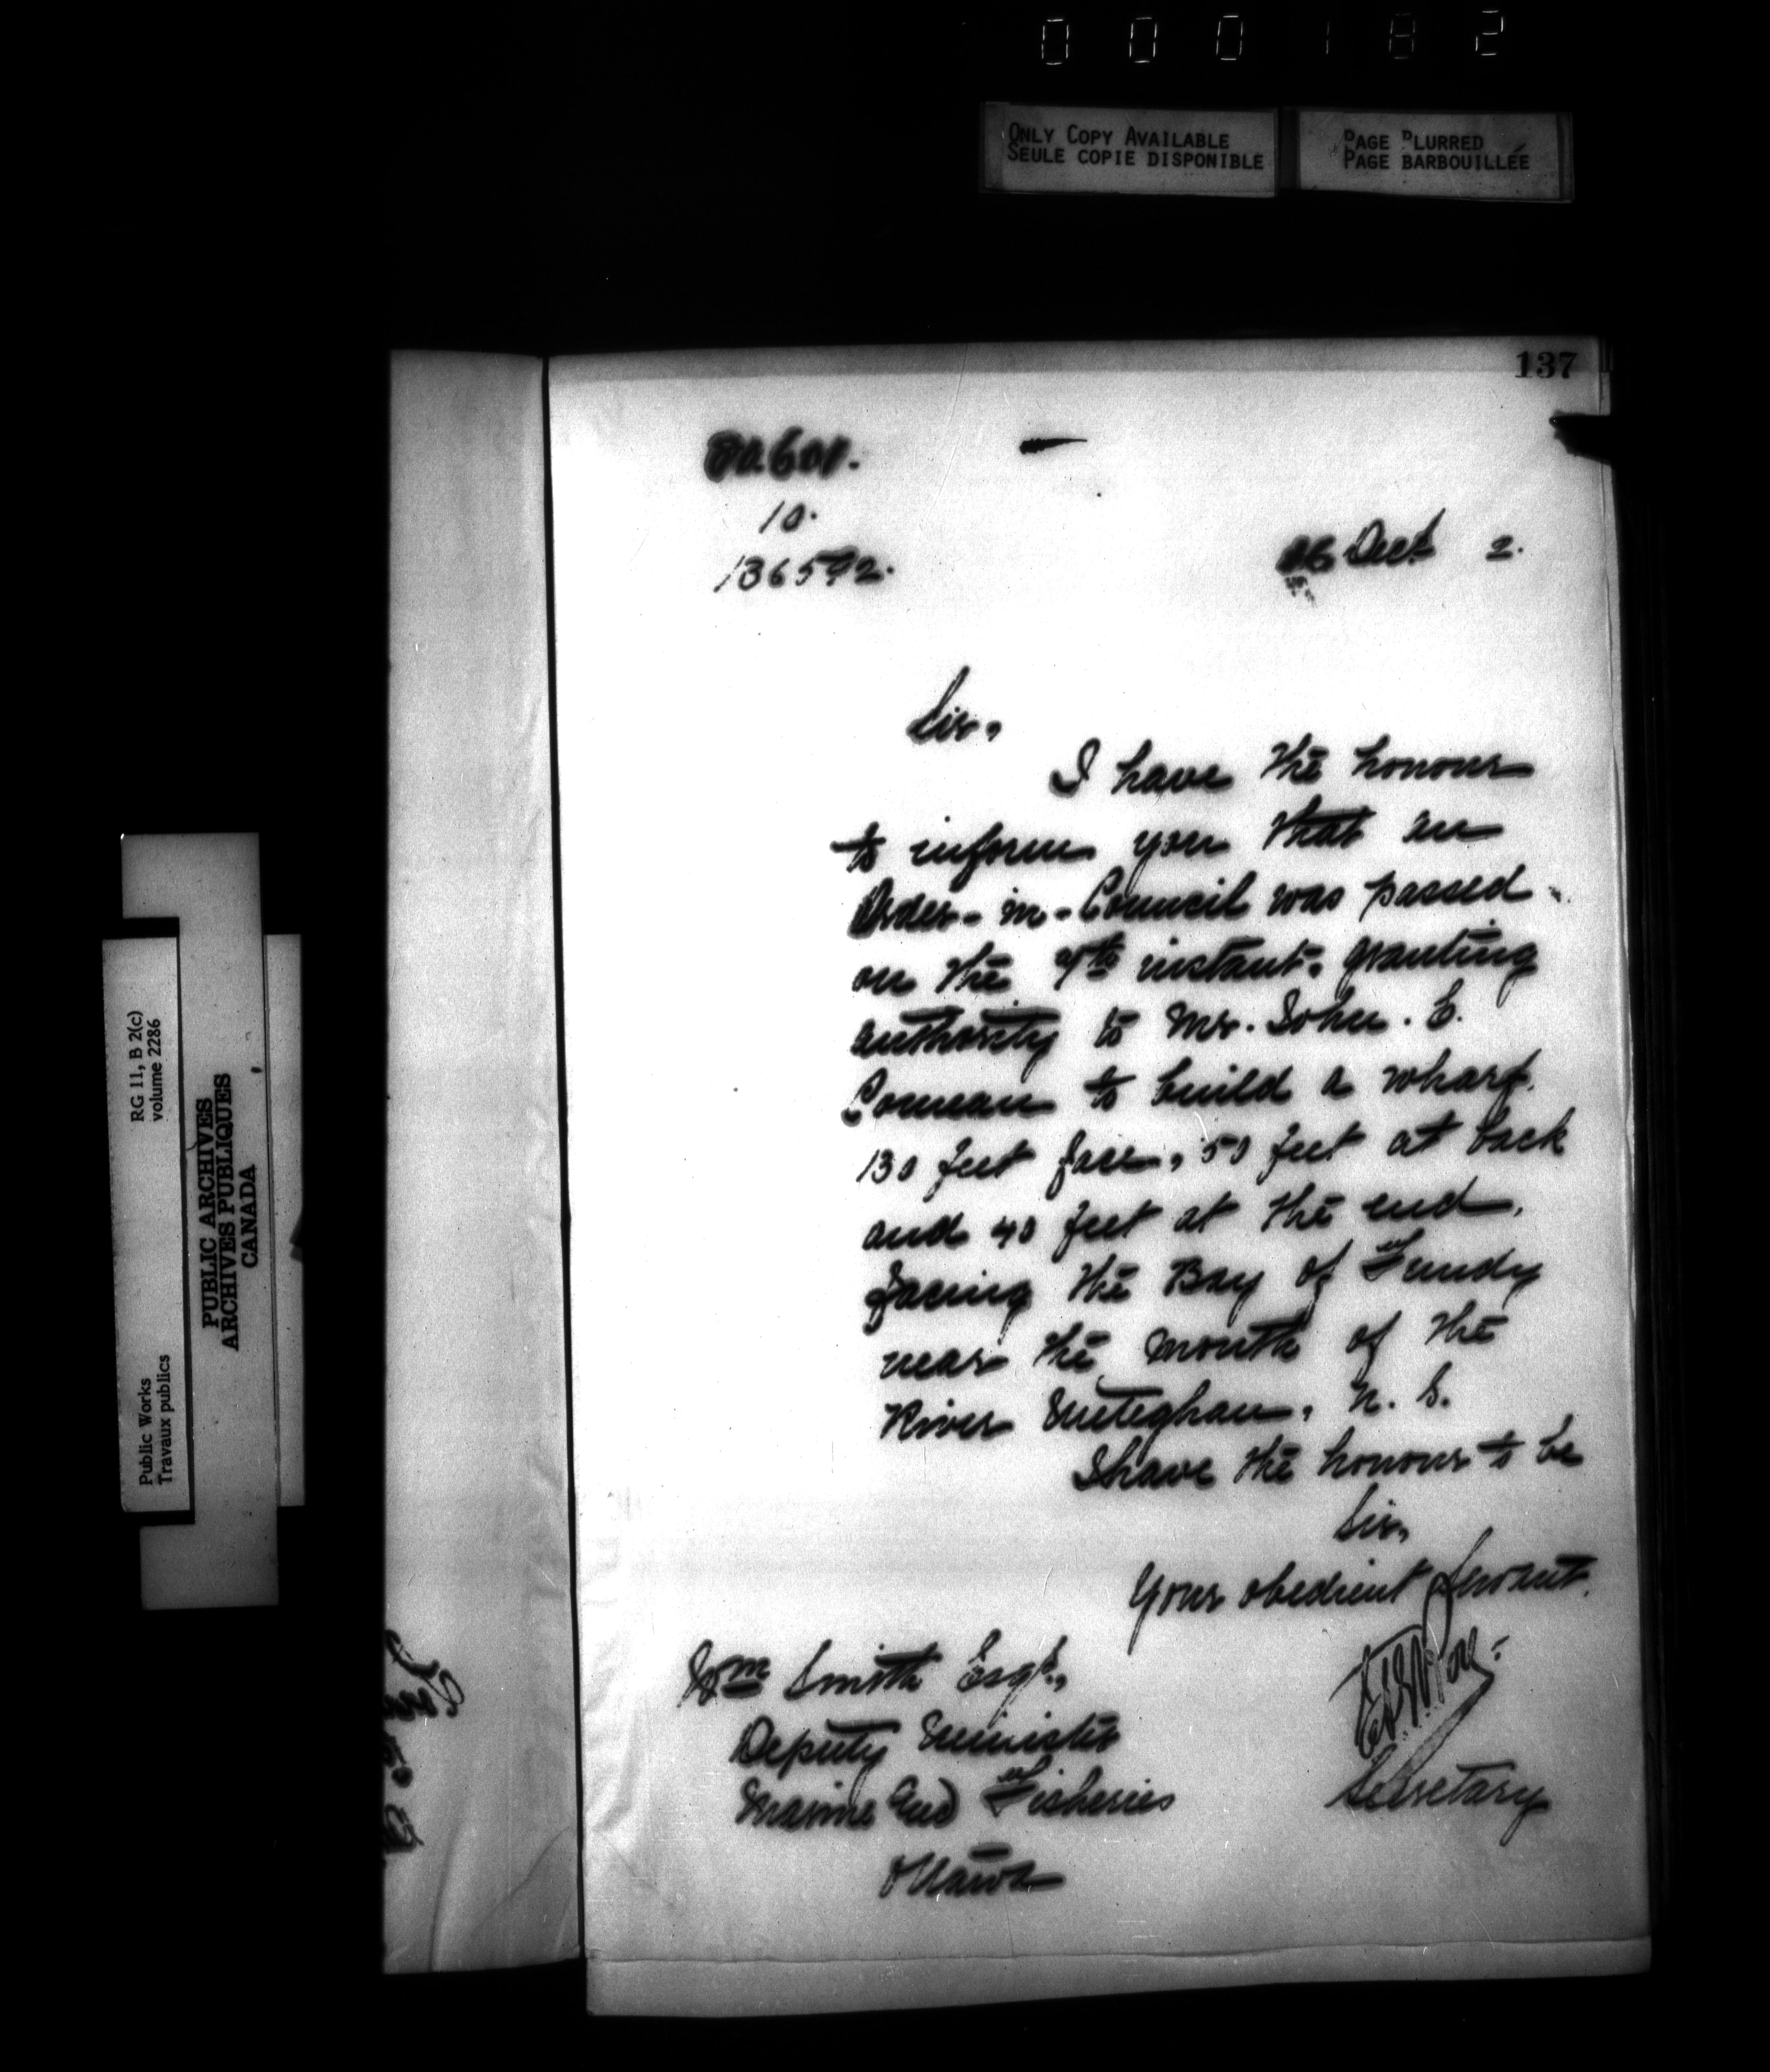 000182
ONLY COPY AVAILABLE
SEULE COPIE DISPONIBLE
PAGE BLURRED
PAGE BARBOUILLÉE
137
10.
136592.
Dect 2.
Sir,
I have the honour
to inform you that an
Order-in-Council was passed
on the 7th instant, granting
authority to Mr. John. E.
Comeau to build a wharf
130 feet face, 50 feet at back
and 40 feet at the end,
facing the Bay of Fundy
near the mouth of the
River Meteghan, N. S.
I have the honour to be
Sir,
Your obedient Servant.
Wm Smith Esqr.,
Deputy Minister
Marine and Fisheries
Ottawa
Secretary
RG 11, B 2(c)
volume 2286
PUBLIC ARCHIVES
ARCHIVES PUBLIQUES
CANADA
Public Works
Travaux publics